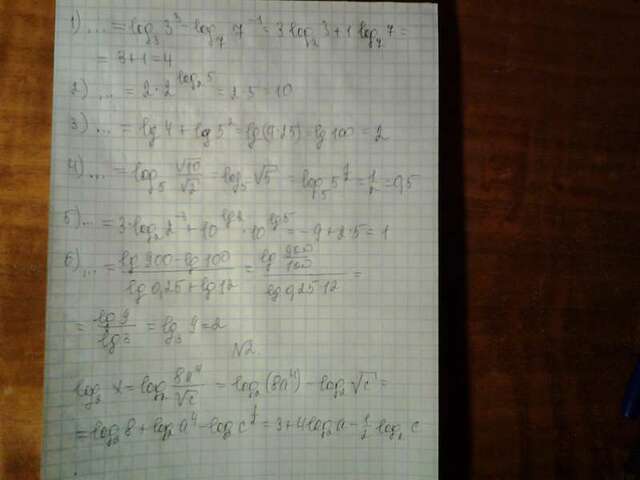 1) ... = log₃ 3³ - log₇ 7⁻¹ = 3 log₃ 3 + 1 log₇ 7 =
= 3+1=4
2) ... = 2·2^(log₂ 5) = 2·5=10
3) ... = lg 4 + lg 5² = lg(4·25) = lg 100 = 2
4) ... = log₅ √10/√2 = log₅ √5 = log₅ 5^(1/2) = 1/2 = 0,5
5) ... = 3·log₂ 2⁻³ + 10^(lg 2) · 10^(lg 5) = -9+2·5=1
6) ... = (lg 900 - lg 100)/(lg 0,25 + lg 12) = (lg 900/100)/(lg 0,25·12) =
= lg 9/lg 3 = log₃ 9 = 2
№2.
log₂ x = log₂ 8a⁴/√c = log₂(8a⁴) - log₂ √c =
= log₂ 8 + log₂ a⁴ - log₂ c^(1/2) = 3+4log₂ a - 1/2 log₂ c